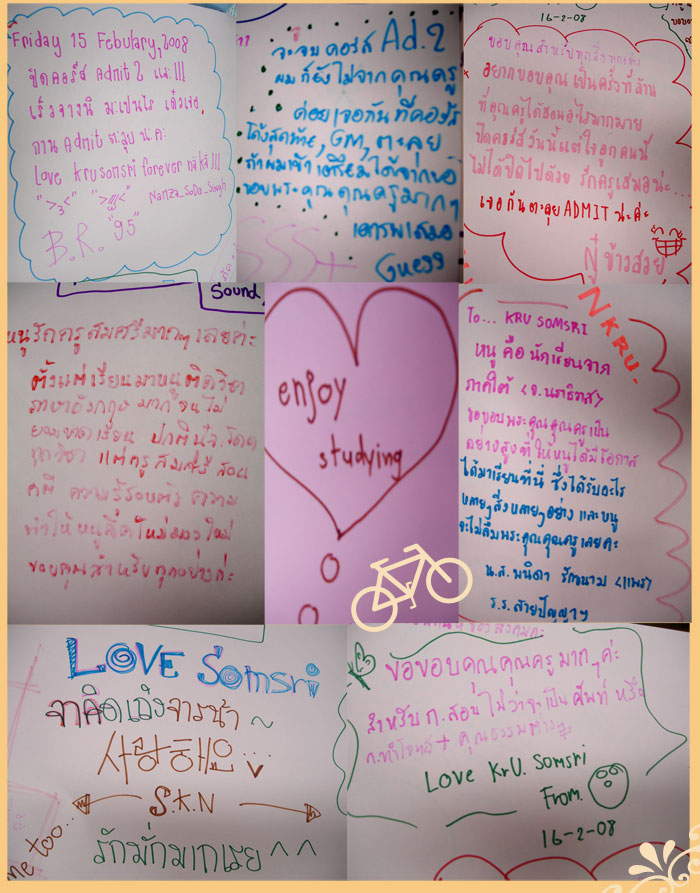 Friday 15 Febulary, 2008
ปิดคอร์ส Admit 2 แล้ว !!!
เร็วจางนิ มะเป็นไร เด๋วเจอ
กาน Admit ตะลุย น่ะค่ะ
Love Kru somsri forever น่ะค่ะ !!!
">3<"
NaMZz_SoDa_Singh
B.R. "95"
จะจบคอร์ส Ad.2
ผมก็ยังไม่จากคุณครู
ค่อยเจอกันที่คอร์ส
โค้งสุดท้าย, GM, ตะลุย
ขอบพระคุณคุณครูมากๆ
เคารพเสมอ
Guess
16-2-08
ขอบคุณสำหรับทุกสิ่งทุกอย่าง
อยากขอบคุณเป็นครั้งที่ล้าน
ที่คุณครูได้สอนอะไรมากมาย
ปิดคอร์สวันนี้แต่ใจลูกคนนี้
ไม่ได้ปิดไปด้วย รักครูเสมอน่ะ...
เจอกันตะลุย ADMIT น่ะค่ะ
ข้าวสวย
Sound
หนูรักครูสมศรีมากๆ เลยค่ะ
ตั้งแต่เรียนมาหนูติดวิชา
ภาษาอังกฤษมากจนไม่
ทุกวิชา แต่ครูสมศรี สอน
ดี ความรู้รอบตัว ความ
ทำให้หนูคิดใหม่มองใหม่
ขอบคุณสำหรับทุกอย่างค่ะ
enjoy
studying
NKRU.
To... KRU SOMSRI
หนู คือ นักเรียนจาก
ภาคใต้ <จ.นราธิวาส>
ขอขอบพระคุณคุณครูเป็น
อย่างสูงที่ให้หนูได้มีโอกาส
ได้มาเรียนที่นี่ ซึ่งได้รับอะไร
หลายๆสิ่งหลายๆอย่าง และหนู
จะไม่ลืมพระคุณคุณครูเลยค่ะ
น.ส. พนิดา รักนาม <แพร>
ร.ร. สายปัญญาฯ
LOVE Somsri
จาคิดเถิงจารน้า ~
사랑해요
S.K.N
me too...
รักมั่กมากเรย ^^
ขอขอบคุณคุณครูมากๆค่ะ
สำหรับ ก.สอน ไม่ว่าจะเป็น ศัพท์ หรือ
ก.ทำโจทย์ + คุณธรรมต่างๆ
Love KrU. Somsri
From.
16-2-08